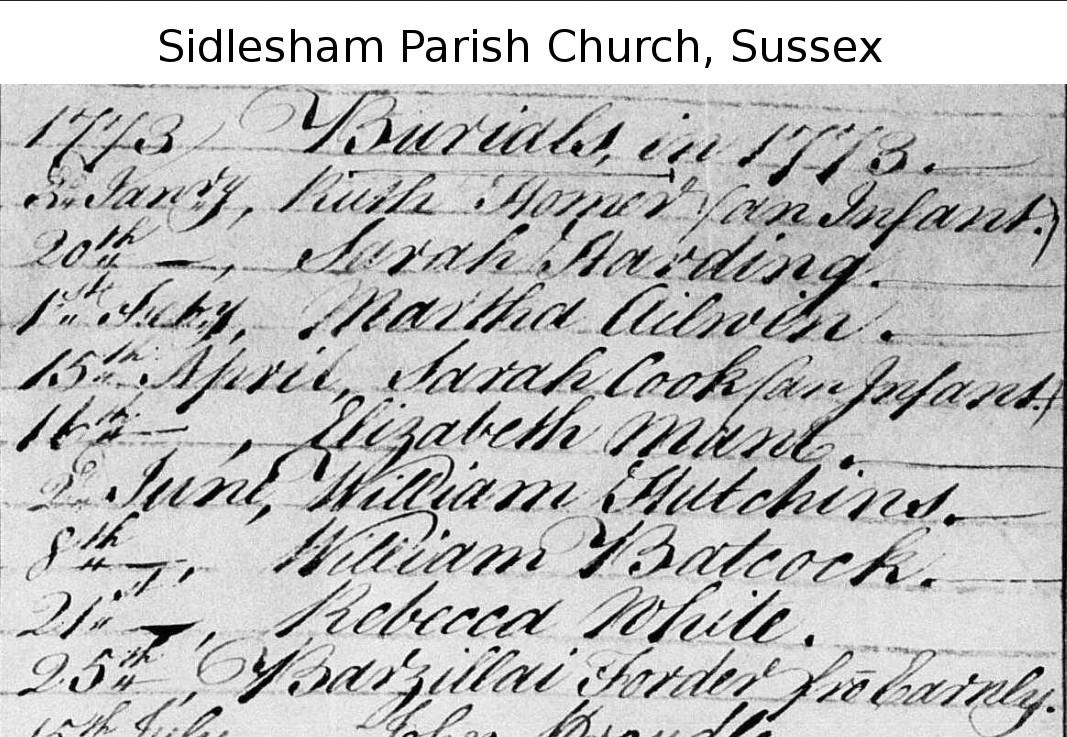 Sidlesham Parish Church, Sussex
1773 Burials, in 1773.
Janry, Ruth Homer (an Infant.)
20th —, Sarah Harding.
1st Feby, Martha Ailwin.
15th April, Sarah Cook (an Infant.)
16th —, Elizabeth Mant.
2d June, William Hutchins.
8th —, William Batcock.
21st —, Rebecca White.
25th —, Barzillai Forder frō Earnly.
15th July John